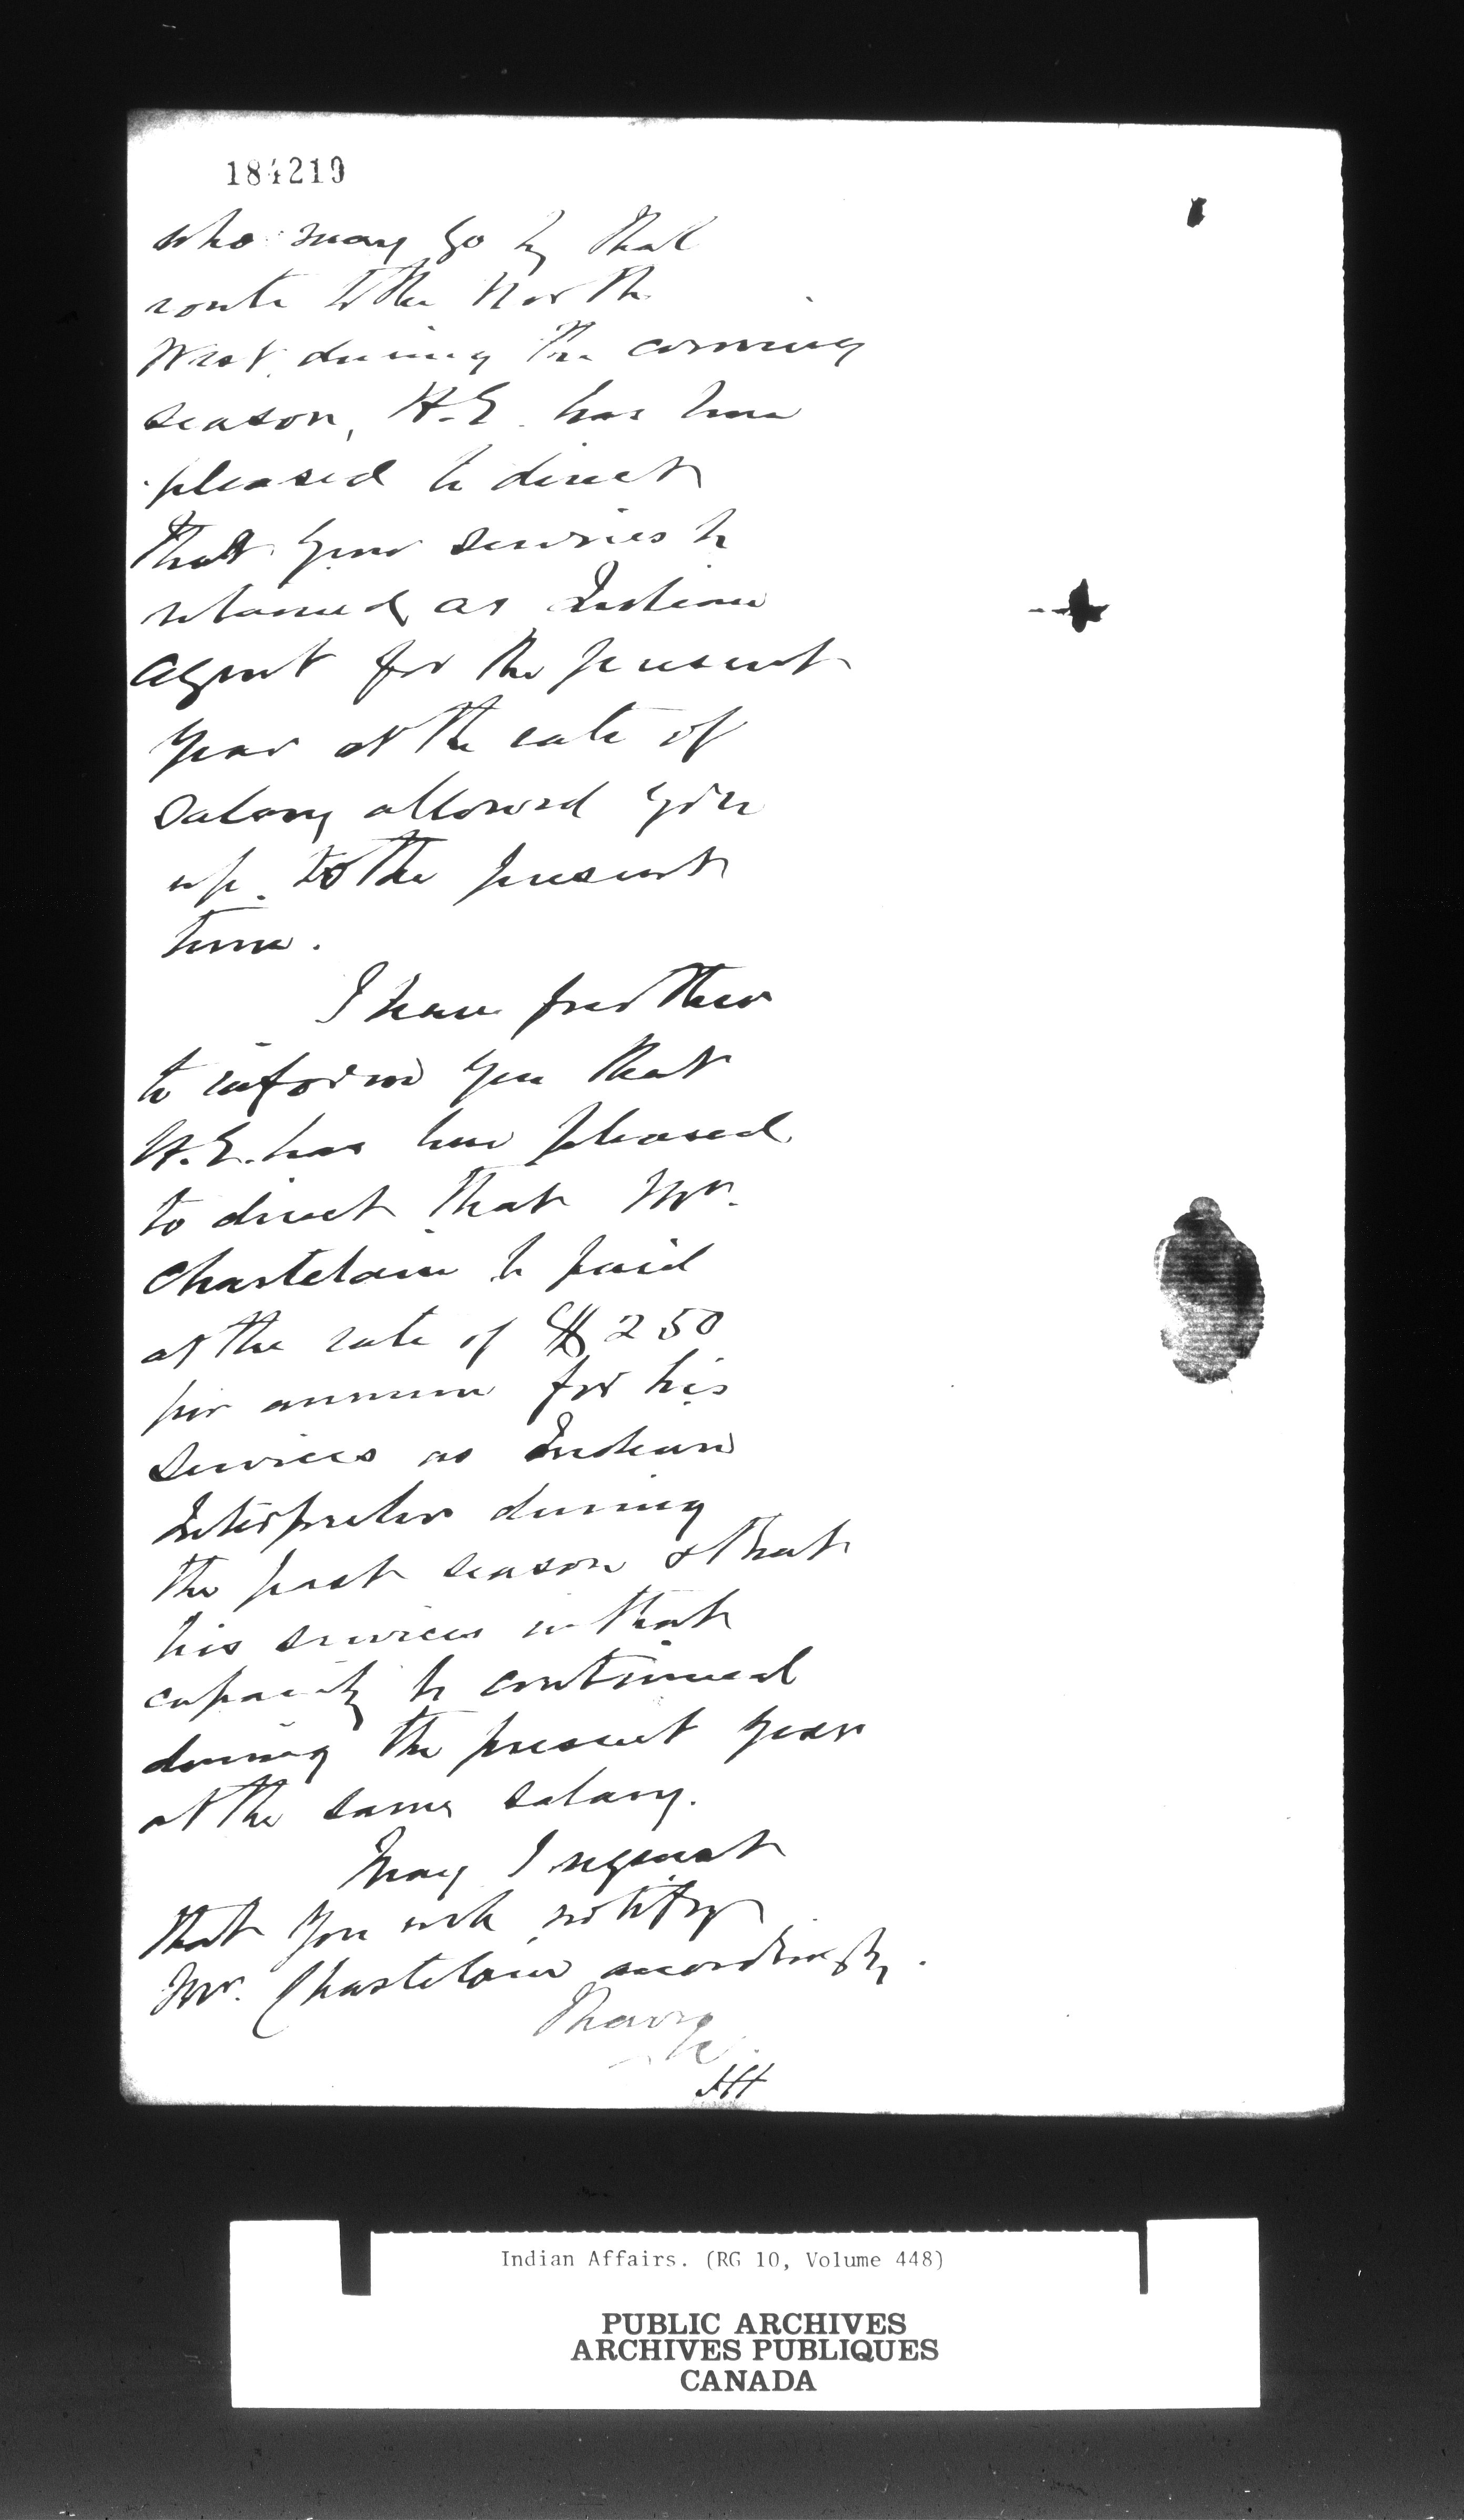 184219
who may go by that
route to the North
West during the coming
season, H.E. has been
pleased to direct
that your services be
retained as Indian
Agent for the present
year at the rate of
salary allowed you
up to the present
time.
I have further
to inform you that
H.E. has been pleased
to direct that Mr.
Chastelain be paid
at the rate of $250
per annum for his
services as Indian
Interpreter during
the past season & that
his services in that
capacity be continued
during the present year
at the same salary.
May I request
that you will notify
Mr. Chastelain accordingly.
I have
Indian Affairs. (RG 10, Volume 448)
PUBLIC ARCHIVES
ARCHIVES PUBLIQUES
CANADA